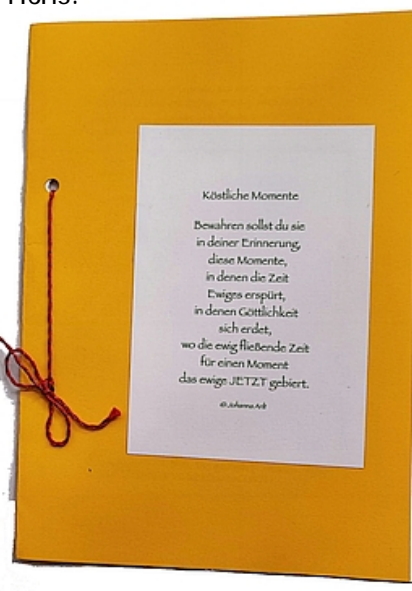 Köstliche Momente
Bewahren sollst du sie
in deiner Erinnerung,
diese Momente,
in denen die Zeit
Ewiges erspürt,
in denen Göttlichkeit
sich erdet,
wo die ewig fließende Zeit
für einen Moment
das ewige JETZT gebiert.
© Johanna Arlt